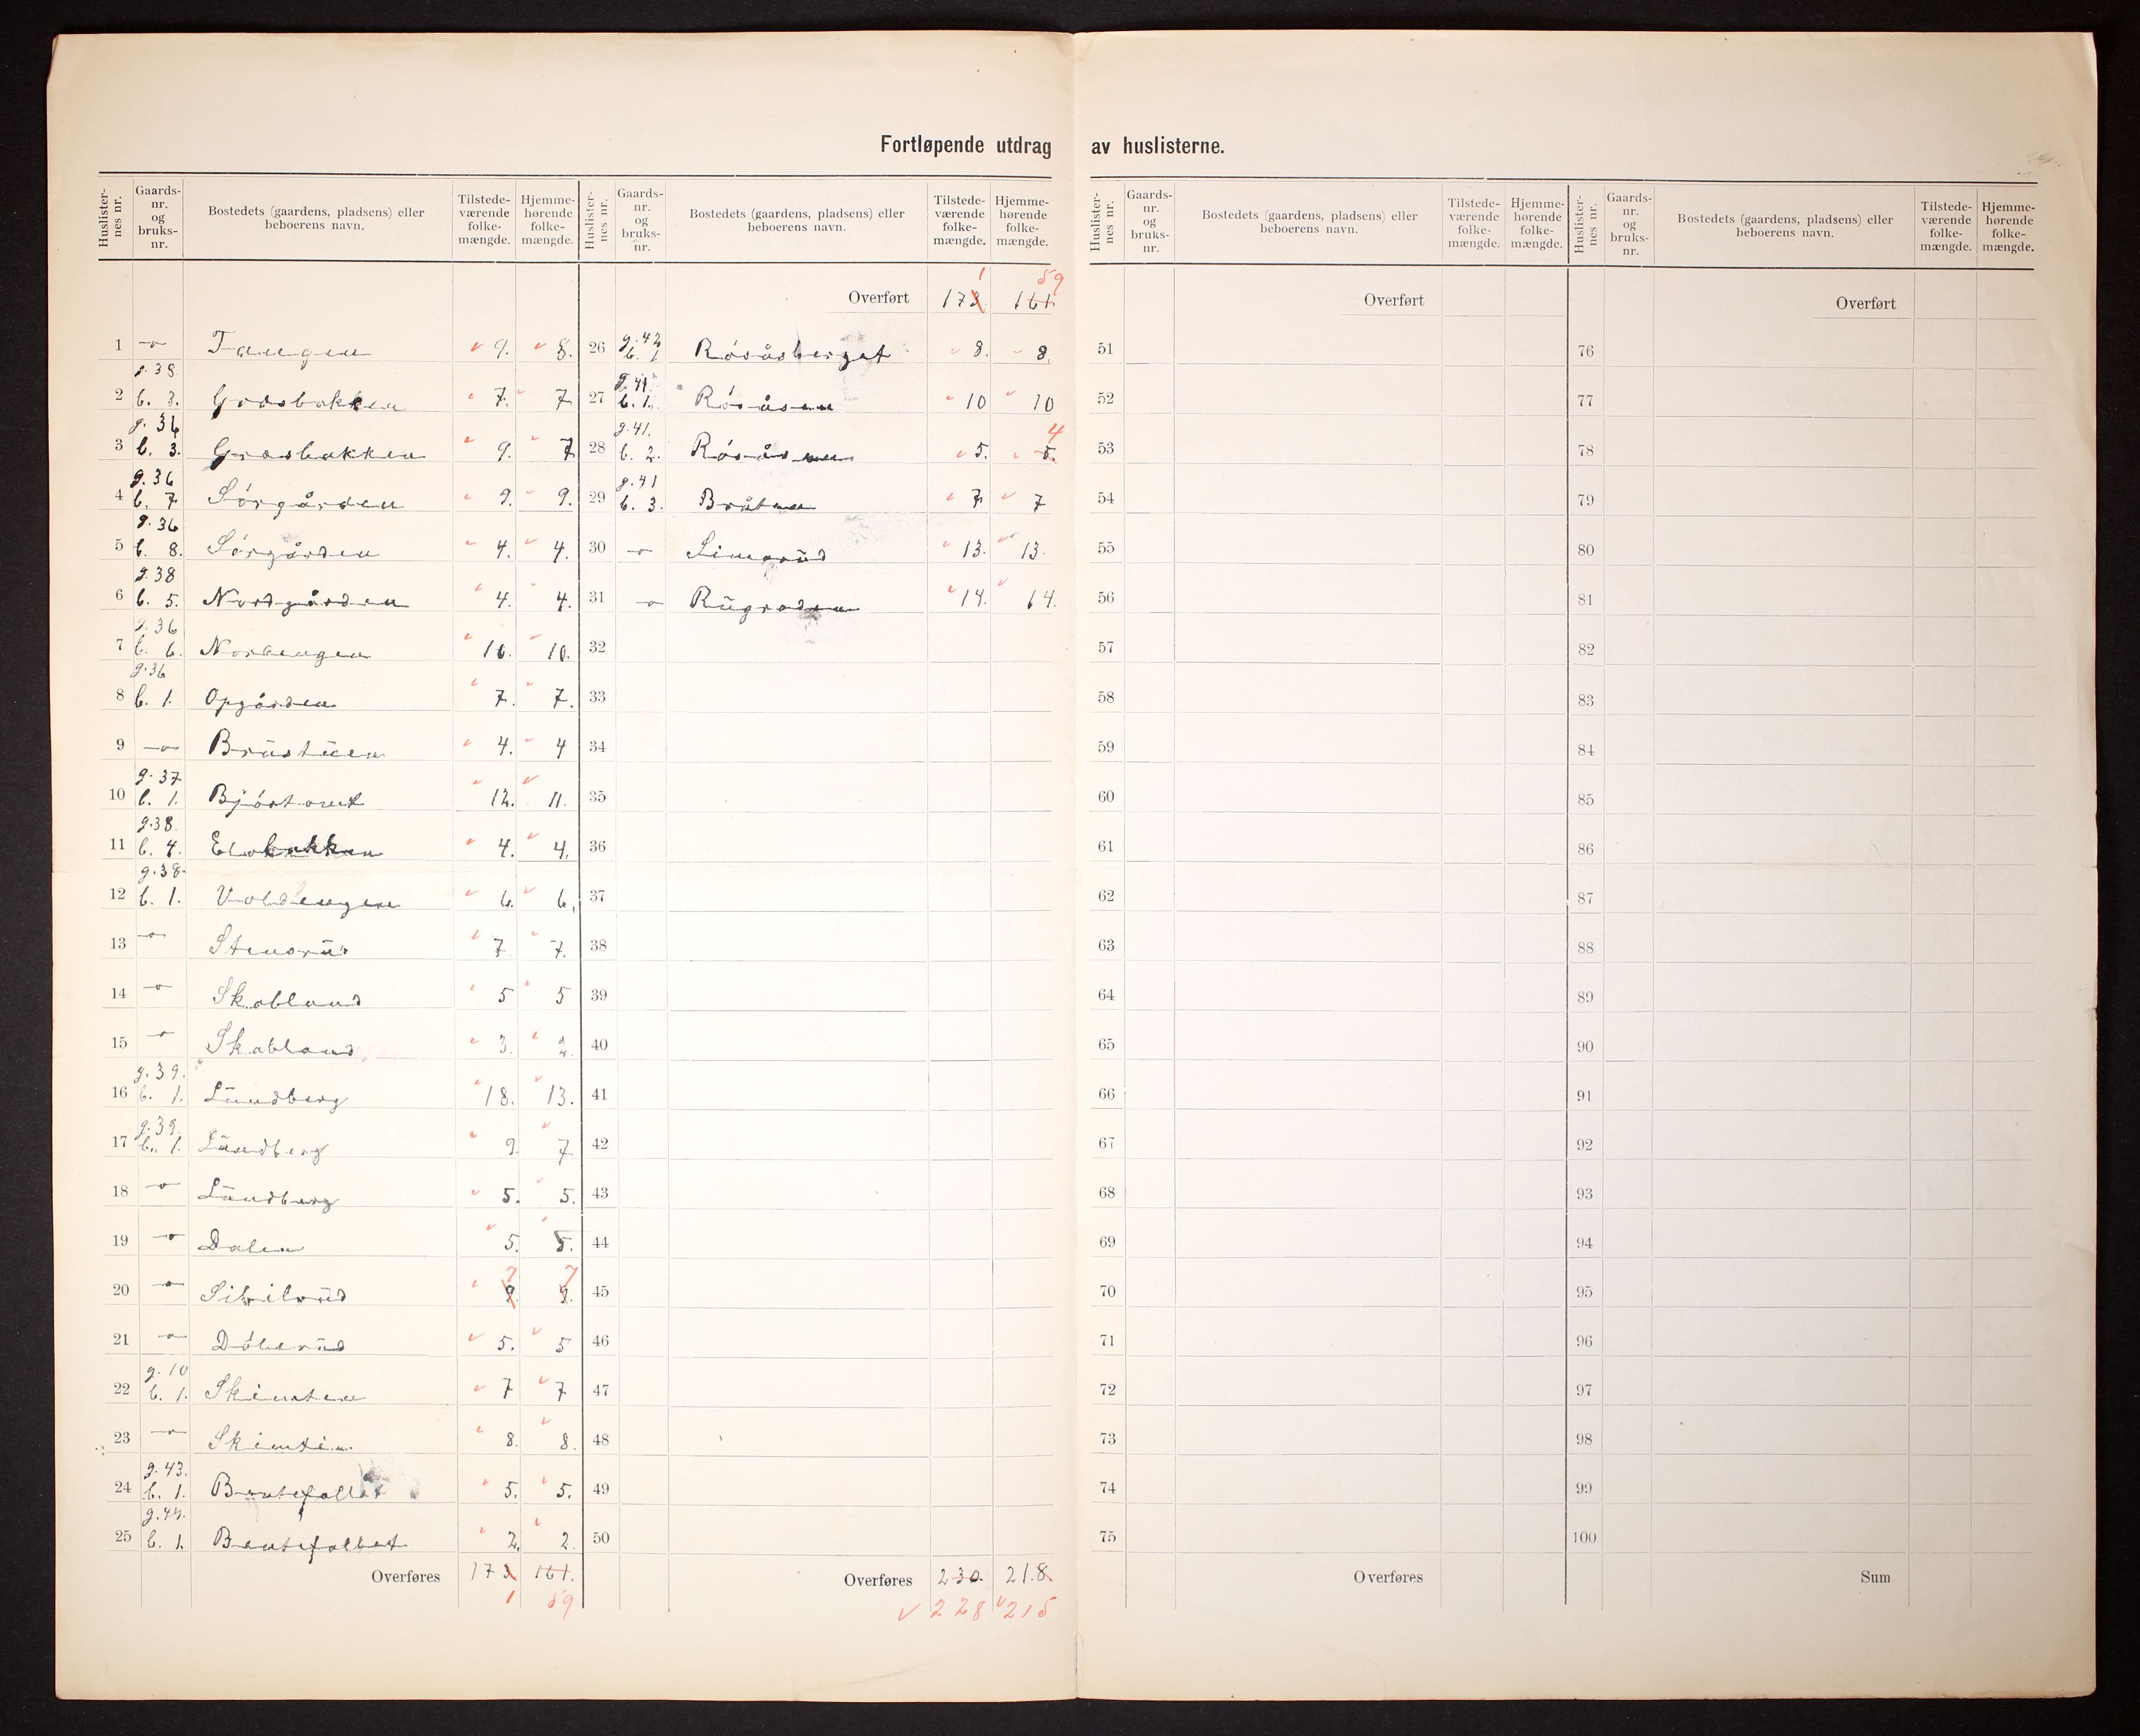 Fortløpende utdrag av huslisterne.
Huslister-nes nr. Gaards-nr. og bruks-nr. Bostedets (gaardens, pladsens) eller beboerens navn. Tilstede-værende folke-mængde. Hjemme-hørende folke-mængde.
1 — Tangen 9. 8.
2 g. 38 b. 3. Græsbakken 7. 7
3 g. 36 b. 3. Græsbakken 9. 7
4 g. 36 b. 7 Sörgården 9. 9.
5 g. 36 b. 8. Sörgården 4. 4.
6 g. 38 b. 5. Nordgården 4. 4.
7 g. 36 b. 6. Nordengen 10. 10.
8 g. 36 b. 1. Opgården 7. 7.
9 — Brustuen 4. 4
10 g. 37 b. 1. 12. 11.
11 g. 38. b. 4. 4. 4.
12 g. 38. b. 1. Voldengen 6. 6.
13 — Stensrud 7 7.
14 — Skabland 5 5
15 — Skabland 3. 2.
16 g. 39. b. 1. Lundberg 18. 13.
17 g. 39. b. 1. Lundberg 9. 7
18 — Lundberg 5. 5.
19 — Dalen 5. 5.
20 — 9 7 9. 7
21 — 5. 5
22 g. 10 b. 1. Skinsten 7 7
23 — 8. 8.
24 g. 43. b. 1. 5. 5.
25 b. 1. 2. 2.
Overføres 173 161.
1 59
Huslister-nes nr. Gaards-nr. og bruks-nr. Bostedets (gaardens, pladsens) eller beboerens navn. Tilstede-værende folke-mængde. Hjemme-hørende folke-mængde.
1 59
Overført 173. 161.
26 g. 42 b. 1 Rösåsberget 8. 8.
27 g. 41. b. 1. Rösåsen 10 10
28 g. 41. b. 2. Rösåsen 5. 5. 4
29 g. 41 b. 3. Bråten 7 7
30 — Limerud 13. 13.
31 — Rugroden 14. 14.
32
33
34
35
36
37
38
39
40
41
42
43
44
45
46
47
48
49
50
Overføres 230. 218.
228 215
Huslister-nes nr. Gaards-nr. og bruks-nr. Bostedets (gaardens, pladsens) eller beboerens navn. Tilstede-værende folke-mængde. Hjemme-hørende folke-mængde.
Overført
51
52
53
54
55
56
57
58
59
60
61
62
63
64
65
66
67
68
69
70
71
72
73
74
75
Overføres
Huslister-nes nr. Gaards-nr. og bruks-nr. Bostedets (gaardens, pladsens) eller beboerens navn. Tilstede-værende folke-mængde. Hjemme-hørende folke-mængde.
Overført
76
77
78
79
80
81
82
83
84
85
86
87
88
89
90
91
92
93
94
95
96
97
98
99
100
Sum